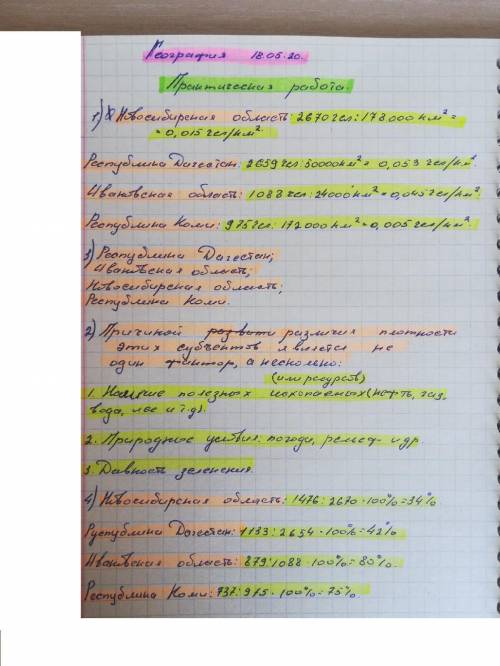 География 18.05.20.
Практическая работа.
1) Новосибирская область: 2670 чел: 178.000 км² =
= 0,015 чел/км².
Республика Дагестан: 2659 чел: 50000 км² = 0,053 чел/км²
Ивановская область: 1088 чел: 24000 км² = 0,045 чел/км²
Республика Коми: 975 чел: 172000 км² = 0,005 чел/км².
3) Республика Дагестан;
Ивановская область;
Новосибирская область;
Республика Коми.
2) Причиной различия плотности
этих субъектов является не
один фактор, а несколько:
(или ресурсов)
1. Наличие полезных ископаемых (нефть, газ,
вода, лес и т.д).
2. Природные условия: погода, рельеф и др.
3. Давность заселения.
4) Новосибирская область: 1476: 2670 · 100% = 34%
Республика Дагестан: 1133: 2654 · 100% = 42%
Ивановская область: 879: 1088 · 100% = 80%.
Республика Коми: 737: 975 · 100% = 75%.